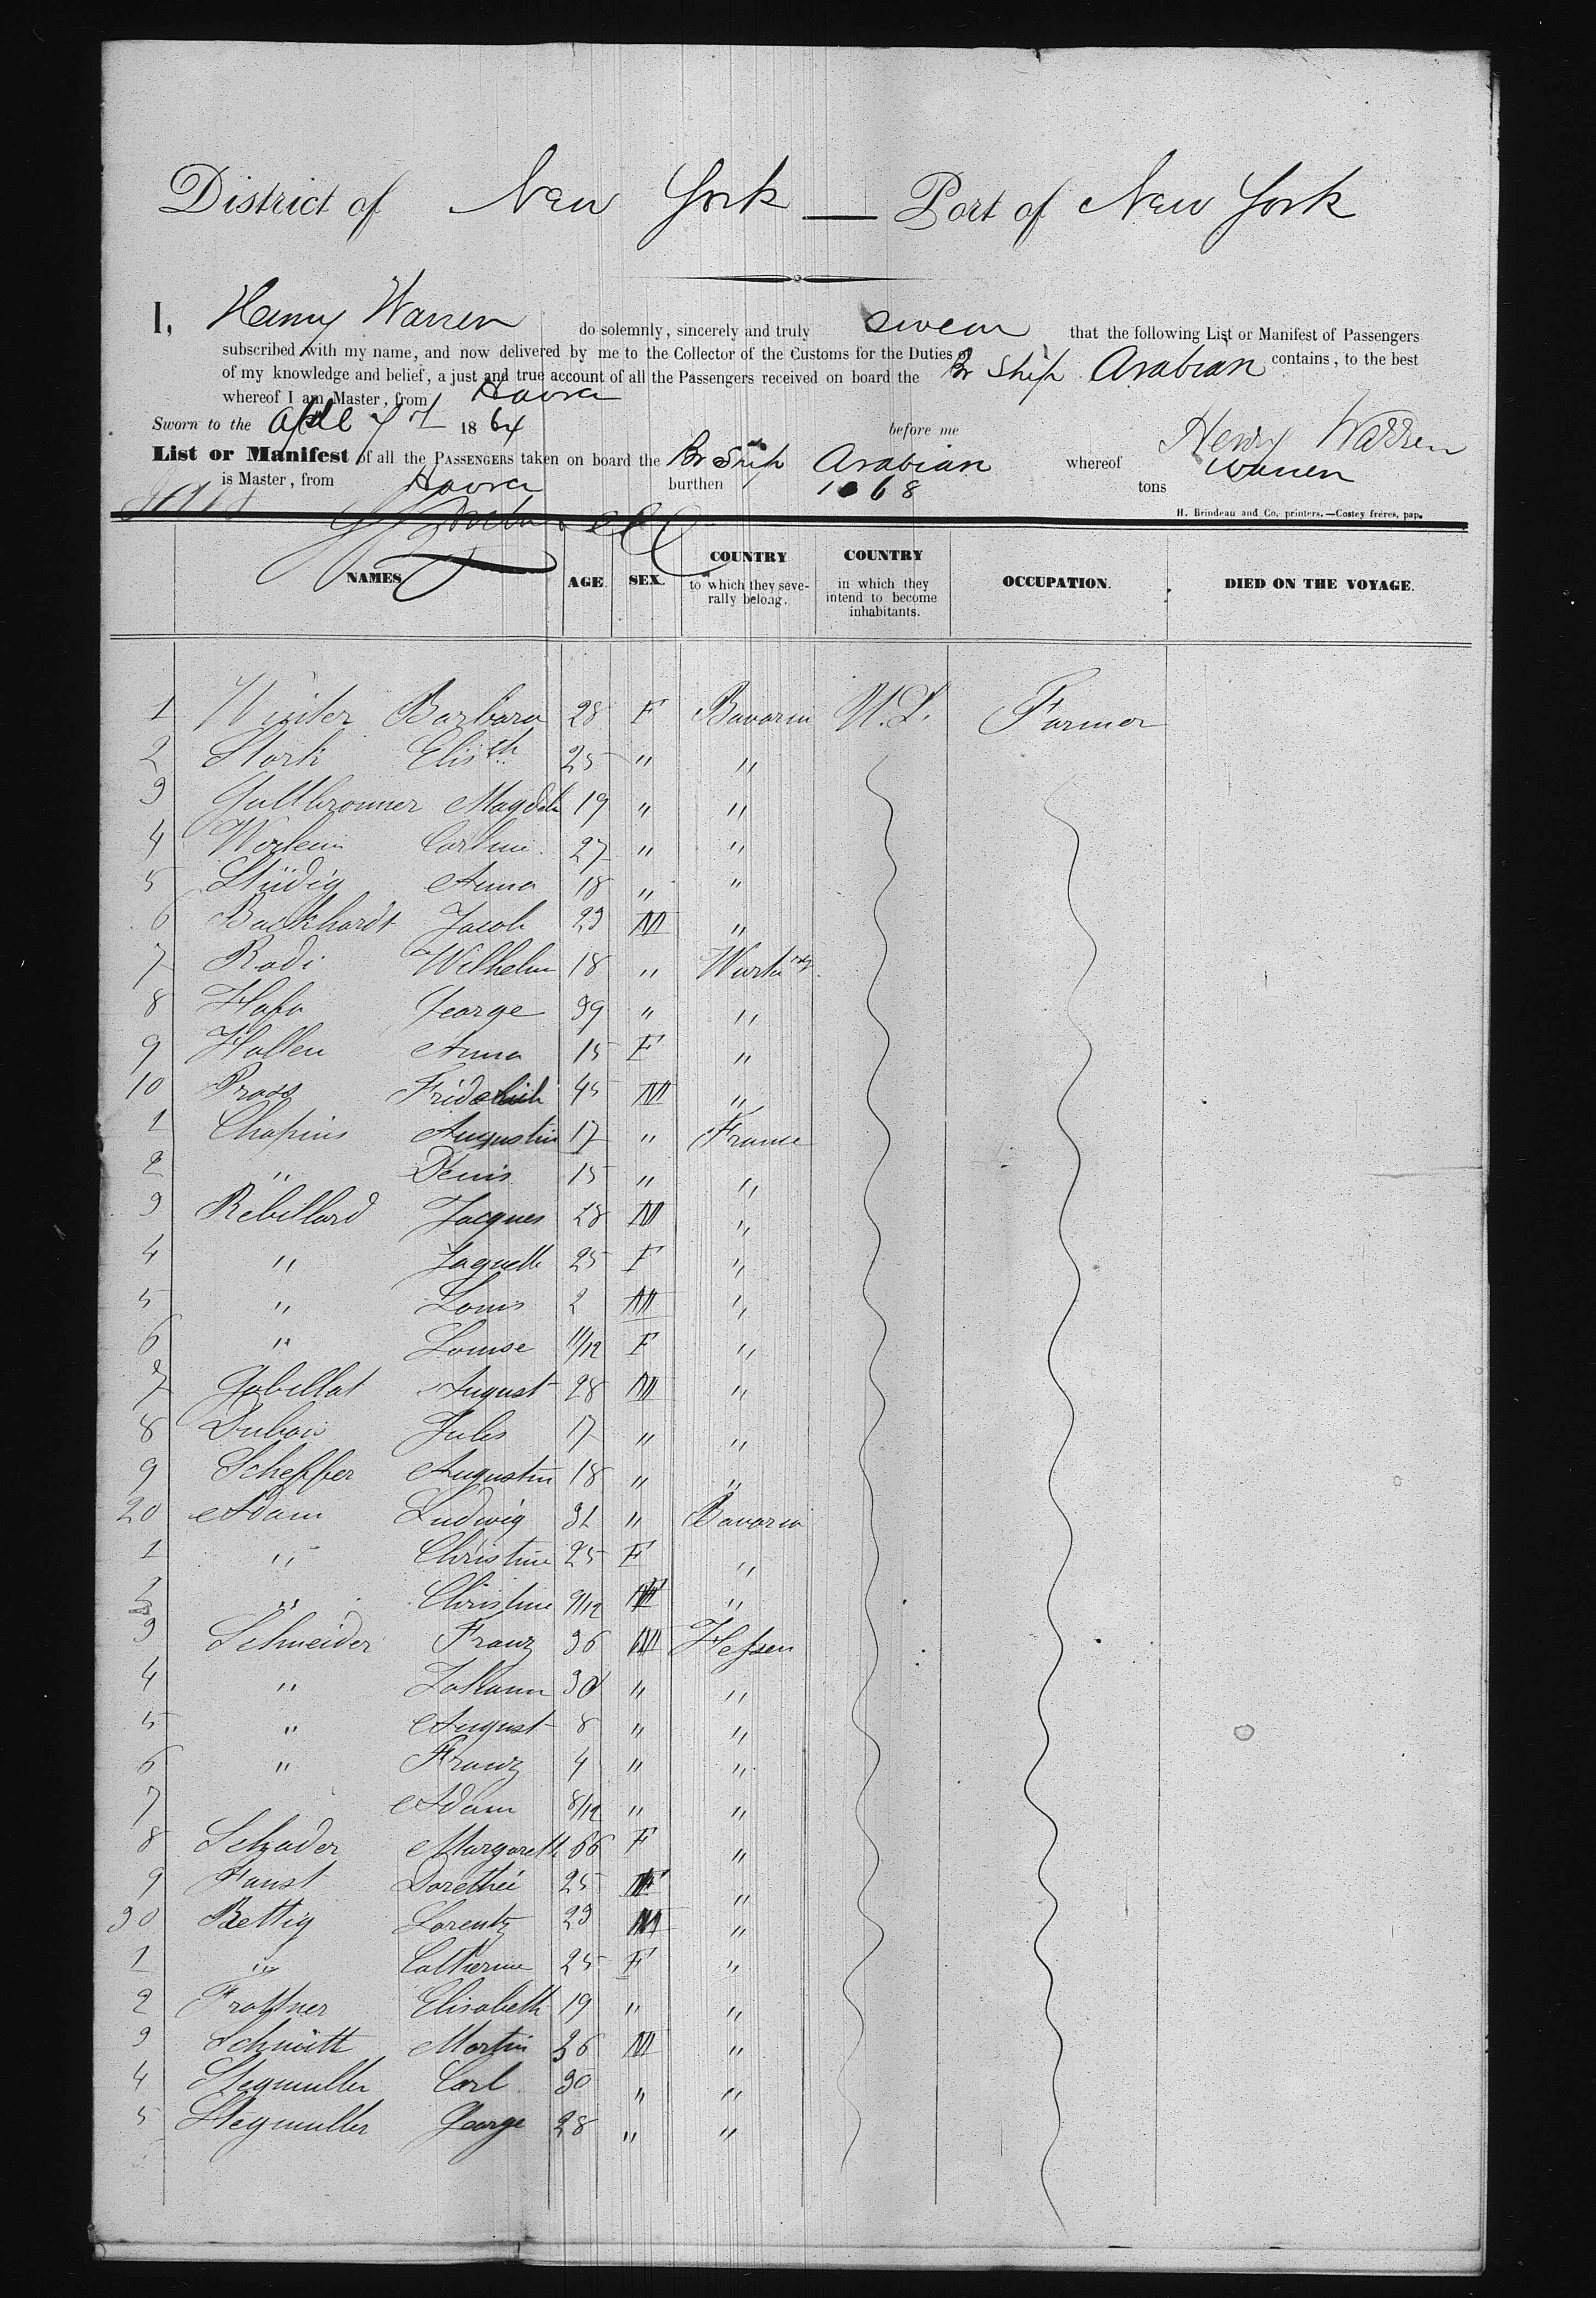 District of New York — Port of New York
I, Henry Warren do solemnly, sincerely and truly swear that the following List or Manifest of Passengers
subscribed with my name, and now delivered by me to the Collector of the Customs for the Duties of
of my knowledge and belief, a just and true account of all the Passengers received on board the Br Ship Arabian contains, to the best
whereof I am Master, from Havre
Sworn to the 1864 before me Henry Warren
List or Manifest of all the PASSENGERS taken on board the Br Ship Arabian whereof Warren
is Master, from Havre burthen 1068 tons
H. Brindeau and Co, printers.—Costey frères, pap.
NAMES AGE. SEX. COUNTRY to which they severally belong. COUNTRY in which they intend to become inhabitants. OCCUPATION. DIED ON THE VOYAGE.
1 Winter Barbara 28 F Bavaria U.S. Farmer
2 Stork Elisth 25 " "
3 Magdh 19 " "
4 27 " "
5 Stüdig Anna 18 " "
6 Backhardt Jacob 23 M "
7 Radi Wilhelm 18 "
8 George 39 " "
9 Hallen Anna 15 F "
10 45 M "
1 Chapius Augustin 17 " France
2 " Denis 15 " "
3 Rebillard Jacques 28 M "
4 " Jaquette 25 F "
5 " Louis 2 M "
6 " Louise 11/12 F "
7 Gobillot August 28 M "
8 Dubois Jules 17 " "
9 Scheffer Augustin 18 " "
20 Adam Ludwig 31 " Bavaria
1 " Christine 25 F "
2 " Christine 9/12 "
3 Schneider Franz 36 M Hessen
4 " Johann 30 " "
5 " August 8 " "
6 " Franz 4 " "
7 Adam 8/12 " "
8 Schrader Margareth 66 F "
9 Faust Dorethée 25 F "
30 Rettig Lorentz 23 M "
1 " Catherine 25 F "
2 Elisabeth 19 " "
3 Schmitt Martin 36 M "
4 Stegmuller Carl 30 " "
5 Stegmuller George 28 " "